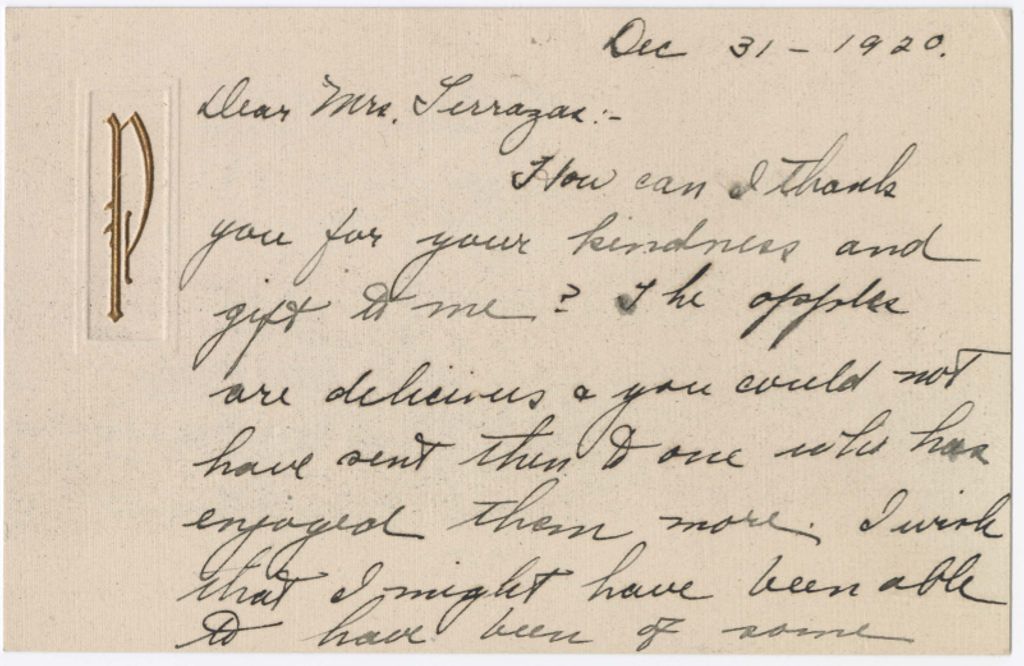 P
Dec 31 - 1920.
Dear Mrs. Terrazas:-
How can I thank
you for your kindness and
gift to me? The apples
are delicious & you could not
have sent then to one who has
enjoyed them more. I wish
that I might have been able
to have been of some